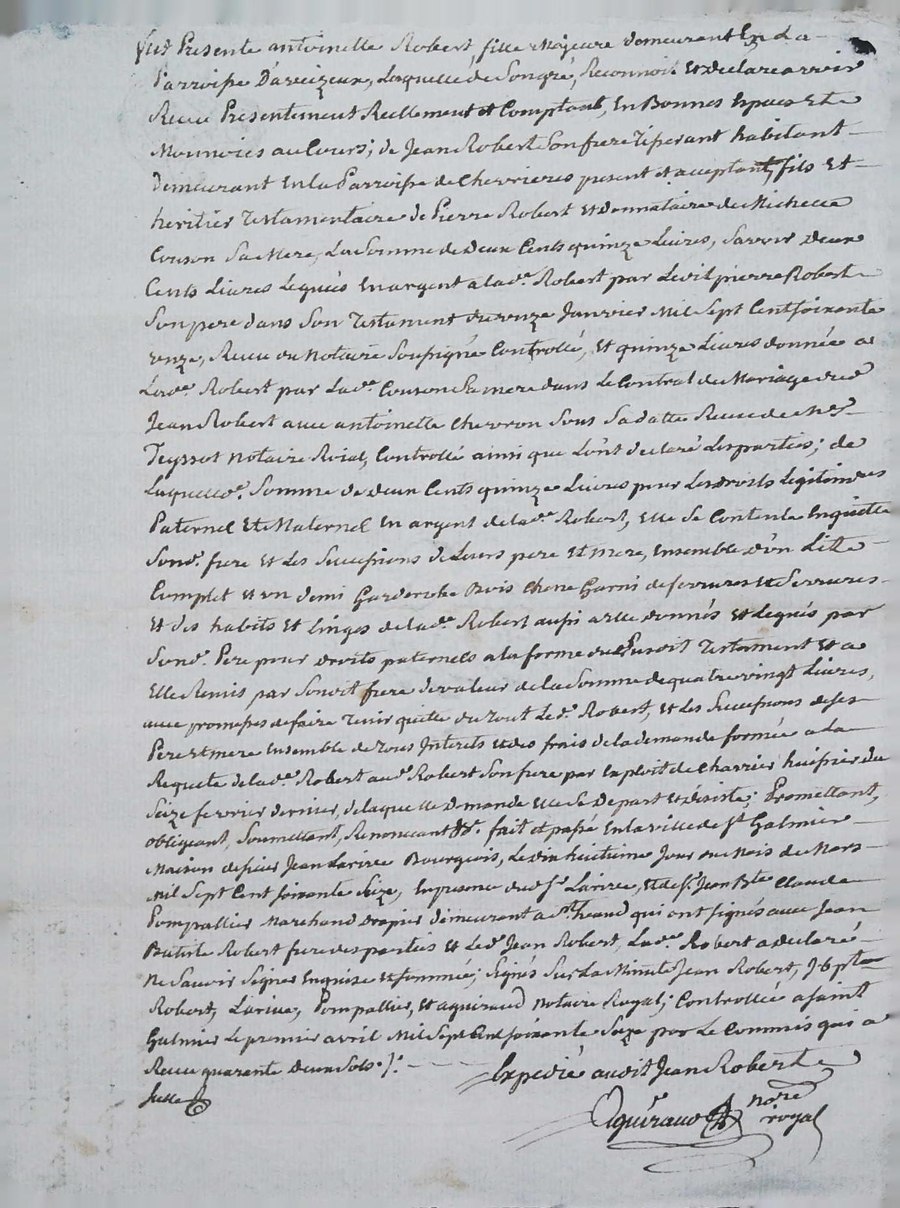 fut Presente antoinette Robert fille Majeure demeurant En La
Parroisse D'aveizeux, Laquelle de Son gré, Reconnoit Et declare avoir
Receu Presentement Reellement et Comptant, En Bonnes Espaces Et
Monnoies au Cours; de Jean Robert Son frere Tiserant habitant
Demeurant En La Parroisse de Chevrieres present et acceptant, fils Et
heritier Testamentaire de Pierre Robert Et Donnataire de Michelle
Couson Sa Mere, La Somme de Deux Cents quinze Livres, Savoir deux
Cents Livres Legués En argent a lade. Robert par Ledit pierre Robert
Son pere dans Son Testament du onze Janvier Mil Sept Cent soixante
onze, Receu du Notaire Soussigné Controllé, Et quinze Livres donnée a
Lade. Robert par Lade. Couson Sa mere dans Le Contrat de Mariage dud
Jean Robert avec antoinette Chevron Sous Sa datte Receu de Me
Teyssot Notaire Roial, Controllé ainsi que L'ont declaré Les parties; de
Laquelle d. Somme de deux Cents quinze Livres pour Les droits Legitimes
Paternel Et Maternel En argent de lade. Robert, Elle Se Contente En quitte
Sond. frere Et Les Successions de Leurs pere Et mere, Ensemble d'un Litte
Complet et un demi Garderobe Bois chene Garni de ferrures et Serrures
Et des habits Et Linges de lade. Robert aussi a elle donnés Et Legués par
Sond. Pere pour droits paternels a la forme du Susdit Testament Et a
Elle Remis par Sondit frere de valeur de la Somme de quatre vingt Livres,
avec promesses de faire Tenir quitte du Tout Le d. Robert, Et Les Successions de ses
Pere et mere Ensemble de Tous Interets et des frais de la demande formée a La
Requete de lade. Robert aud. Robert Son frere par Exploit de Charrier huissier du
Seize fevrier dernier, de laquelle demande Elle Se Depart Et désiste; Promettant,
obligeant, Soumettant, Renonceant &a. fait et passé En La ville de St Galmier
Maison de sieur Jean Larive Bourgeois, Le dix huitieme Jour du Mois de Mars
Mil Sept Cent soixante Seize, En presence dud sr. Larive, Et de sr. Jean Bte Claude
Pompallier Marchand Drapier demeurant a St heand qui ont signés avec Jean
Batiste Robert frere des parties et Led. Jean Robert, Lade. Robert a declaré
Ne Savoir Signer Enquise et sommée; Signés Sur La Minute Jean Robert, J. bpte
Robert, Larive, Pompallier, Et aguiraud Notaire Royal; Controllée a saint
Galmier Le premier avril Mil Sept Cent soixante Seize par Le Commis qui a
Receu quarante deux Sols.
Expedié audit Jean Robert
Aguiraud nore
royal